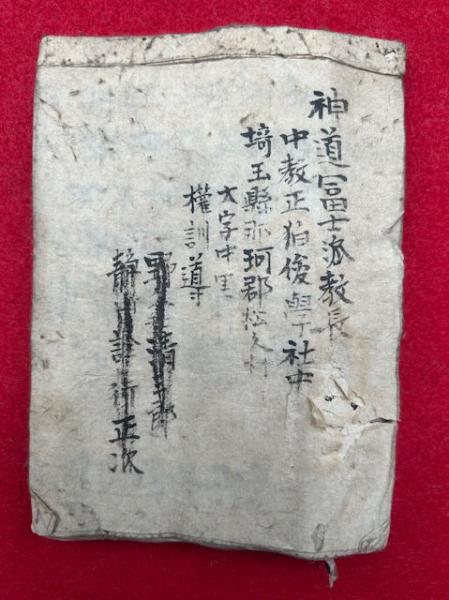 神道冨士派教長
中教正狛俊學社中
埼玉縣那珂郡松久村
大字中里
權訓導
野 清 郎
静山 行正次